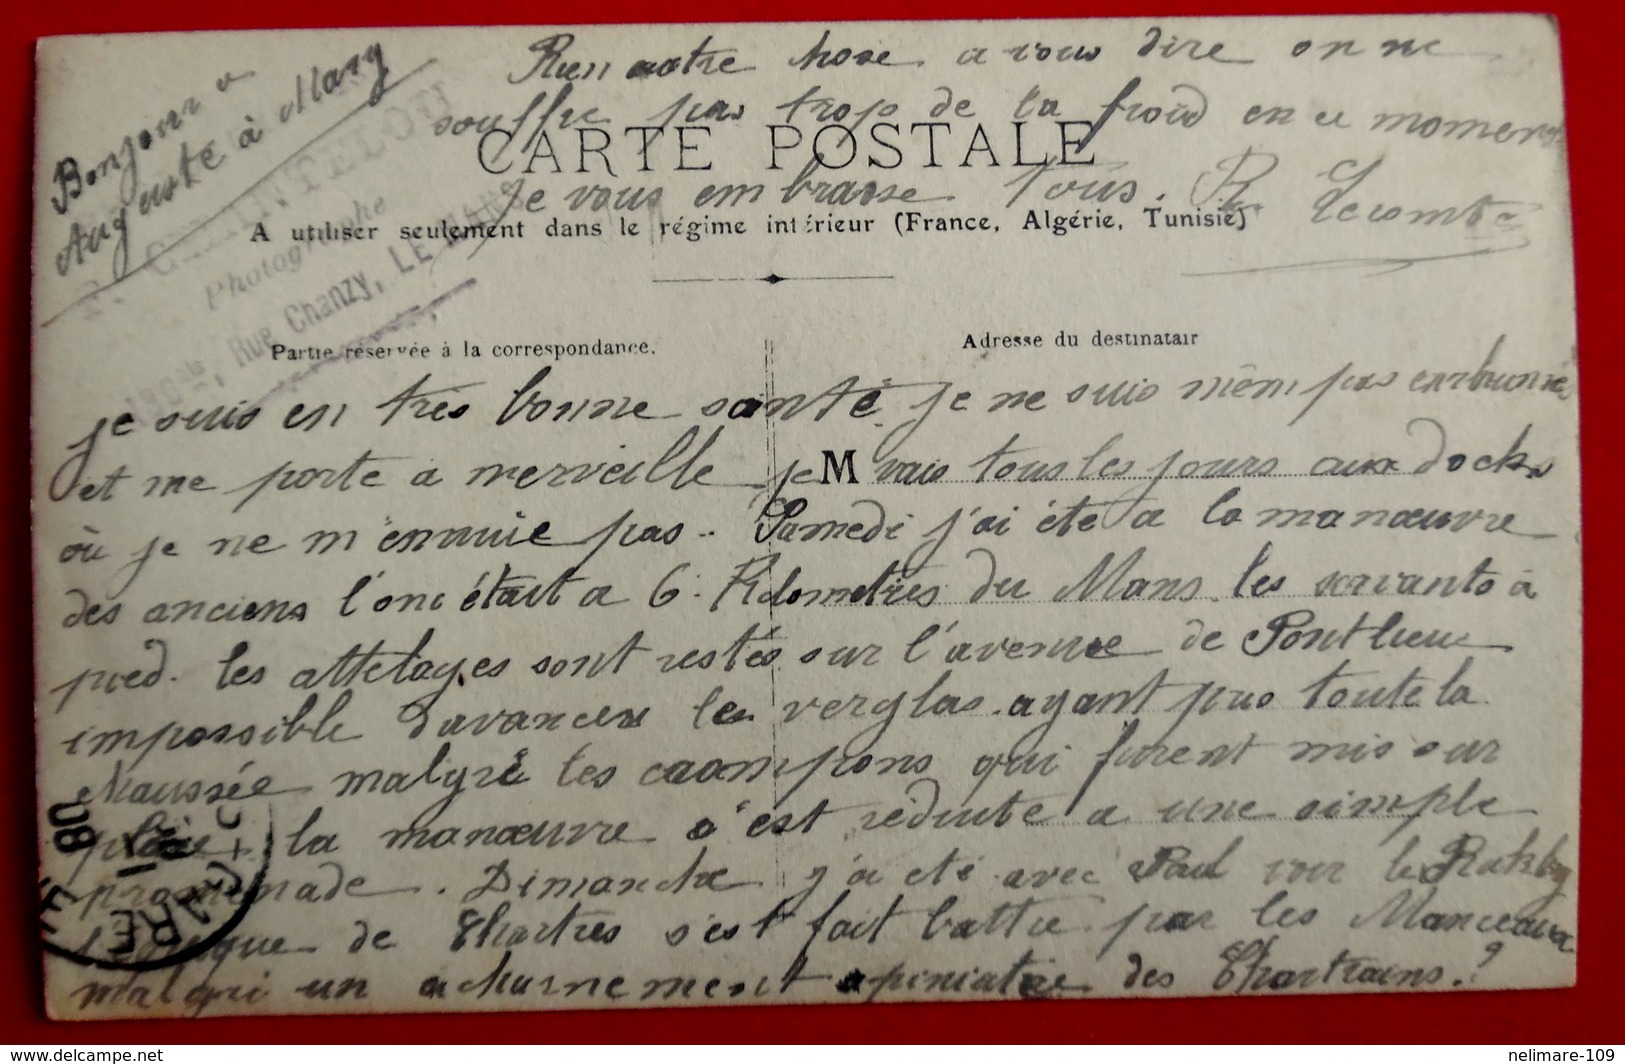 Bonjour a
Auguste à Mary
Rien autre chose a vous dire on ne
souffre pas trop de la froid en ce moment
CARTE POSTALE
je vous embrasse Tous. R. Lecomte
A utiliser seulement dans le régime intérieur (France, Algérie, Tunisie)
Photographe
Rue Chanzy, LE MANS
Partie réservée à la correspondance.
Adresse du destinatair
je suis en très bonne santé je ne suis mêm pas enrhumé
et me porte a merveille je M vais tous les jours aux docks
où je ne m'ennuie pas. Samedi j'ai été a la manœuvre
des anciens l'on était a 6 Kilometres du Mans les servants à
pied. les attelages sont restés sur l'avenue de Pontlieue
impossible d'avancer le verglas ayant pris toute la
chaussée malgré les crampons qui furent mis sur
place la manœuvre s'est reduite a une simple
promenade. Dimanche j'ai été avec Paul voir le
de Chartres s'est fait battre par les Manceaux
malgri un acharnement opiniatre des Chartrains.
80
GARE
nelimare-109
© delcampe.net